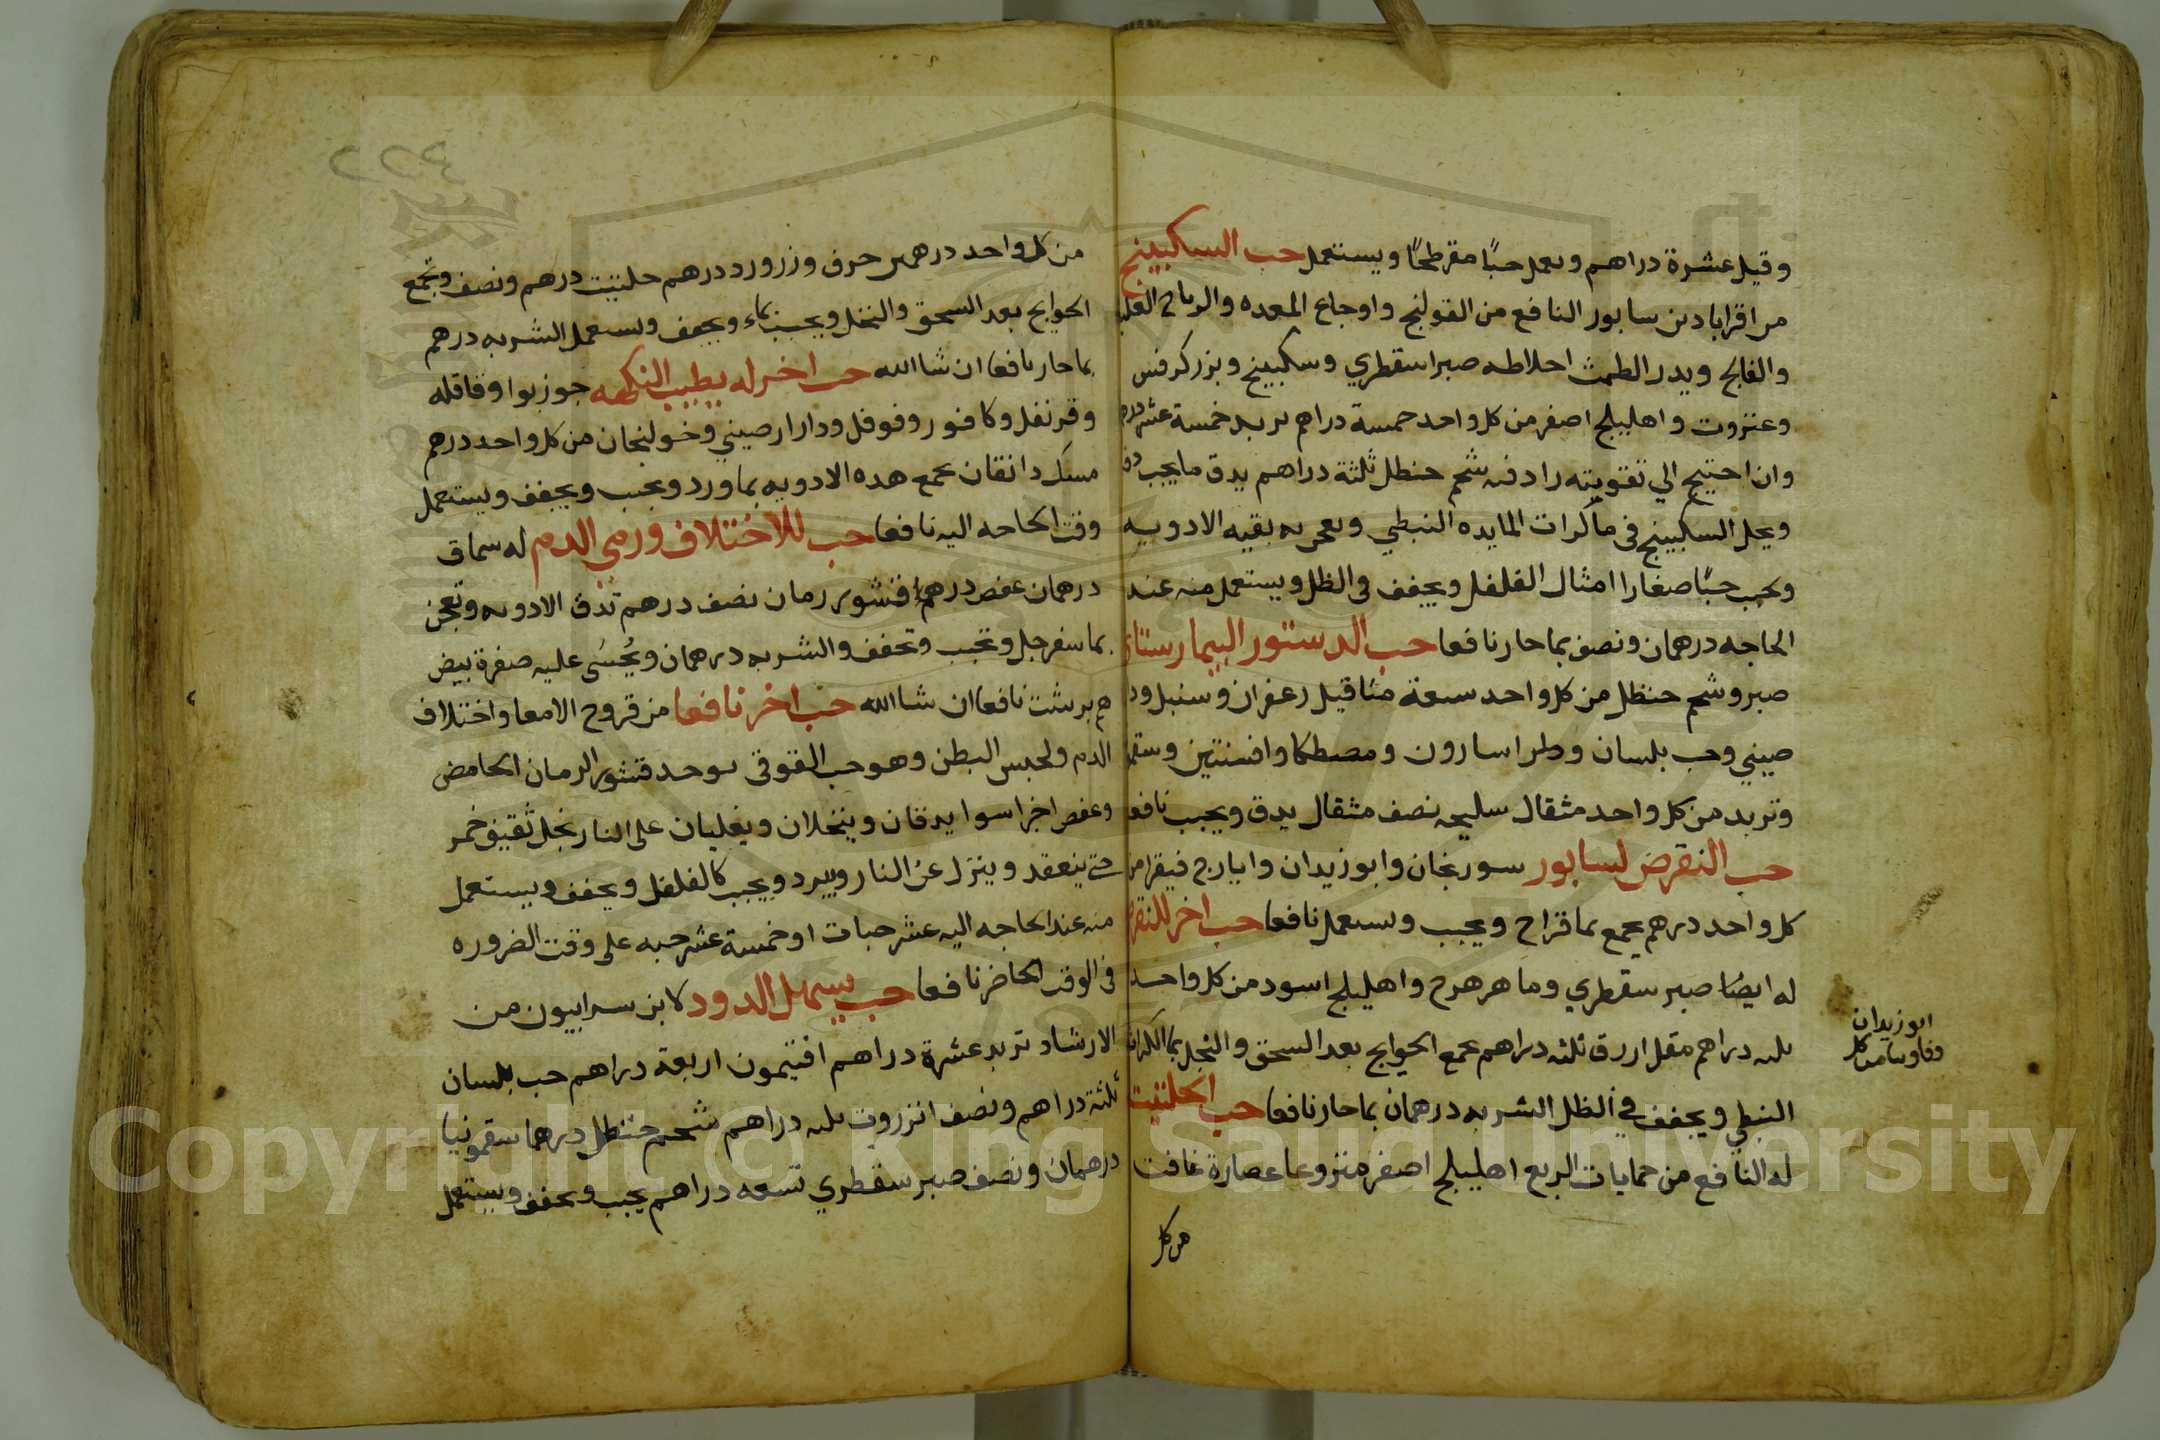 وقيل عشرة دراهم ويعمل حبًا مقرطحًا ويستعمل حب السكبينج
من اقراباذين سابور النافع من القولنج واوجاع المعده والرياح
والفالج ويدر الطمث اخلاطه صبر اسقطري وسكبينج وبزر كرفس
وعنزروت واهليلج اصفر من كل واحد خمسة دراهم تربد خمسة عشر
وان احتيج الي تقويته زاد فيه شحم حنظل ثلثة دراهم يدق ما يجب
ويحل السكبينج في ما كرات المايده النبطي ويعجن به بقيه الادويه
ويحبب حبًا صغارا امثال الفلفل ويجفف في الظل ويستعمل منه عند
الحاجه درهمان ونصف بما حار نافعا حب الدستور البيمارستان
صبر وشحم حنظل من كل واحد سبعة مثاقيل زعفران وسنبل
صيني وحب بلسان واسارون ومصطكا وافسنتين
وتربد من كل واحد مثقال سليخه نصف مثقال يدق ويحبب نافعا
حب النقرس لسابور سورنجان وابو زيدان وايارج فيقرا من
كل واحد درهم يجمع بما قراح ويحبب ويستعمل نافعا حب اخر للنقرس
له ايضا صبر سقطري وماهزهرج واهليلج اسود من كل واحد
ثلثه دراهم مقل ازرق ثلثه دراهم يجمع الحوايج بعد السحق والنخل بما الكراث
النبطي ويجفف في الظل الشربه درهمان بما حار نافعا حب الحلتيت
له النافع من حمايات الربع اهليلج اصفر منزوعا عصارة غافت
من كل
ابو زيدان
٢٢٤
من كل واحد درهمين حرف وزرورد درهم حلتيت درهم ونصف وتجمع
الحوايج بعد السحق والنخل ويحبب بماء ويجفف ويستعمل الشربه درهم
بما حار نافعا ان شا الله حب اخر له يطيب النكهه جوزبوا وقاقله
وقرنفل وكافور وفوفل ودارصيني وخولنجان من كل واحد درهم
مسك دانقان يجمع هذه الادويه بماورد ويحبب ويجفف ويستعمل
وقت الحاجه اليه نافعا حب للاختلاف ورمي الدم له سماق
درهمان عفص درهم قشور رمان نصف درهم تدق الادويه وتعجن
بما سفرجل وتحبب وتجفف والشربه درهمان ويُحسَى عليه صفرة بيض
نيمبرشت نافعا ان شا الله حب اخر نافعا من قروح الامعا واختلاف
الدم ولحبس البطن وهو حب القوقي يوخذ قشور الرمان الحامض
وعفص اجزا سوا يدقان وينخلان ويغليان على النار بخل ثقيف خمر
حتى ينعقد وينزل عن النار ويبرد ويحبب كالفلفل ويجفف ويستعمل
منه عند الحاجه اليه عشر حبات او خمسة عشر حبه على وقت الضروره
في الوقت الحاضر نافعا حب يسهل الدود لابن سرابيون من
الارشاد تربد عشرة دراهم افتيمون اربعة دراهم حب بلسان
ثلثة دراهم ونصف انزروت ثلثه دراهم شحم حنظل درهما سقمونيا
درهمان ونصف صبر سقطري تسعه دراهم يحبب ويجفف ويستعمل
Copyright © King Saud University